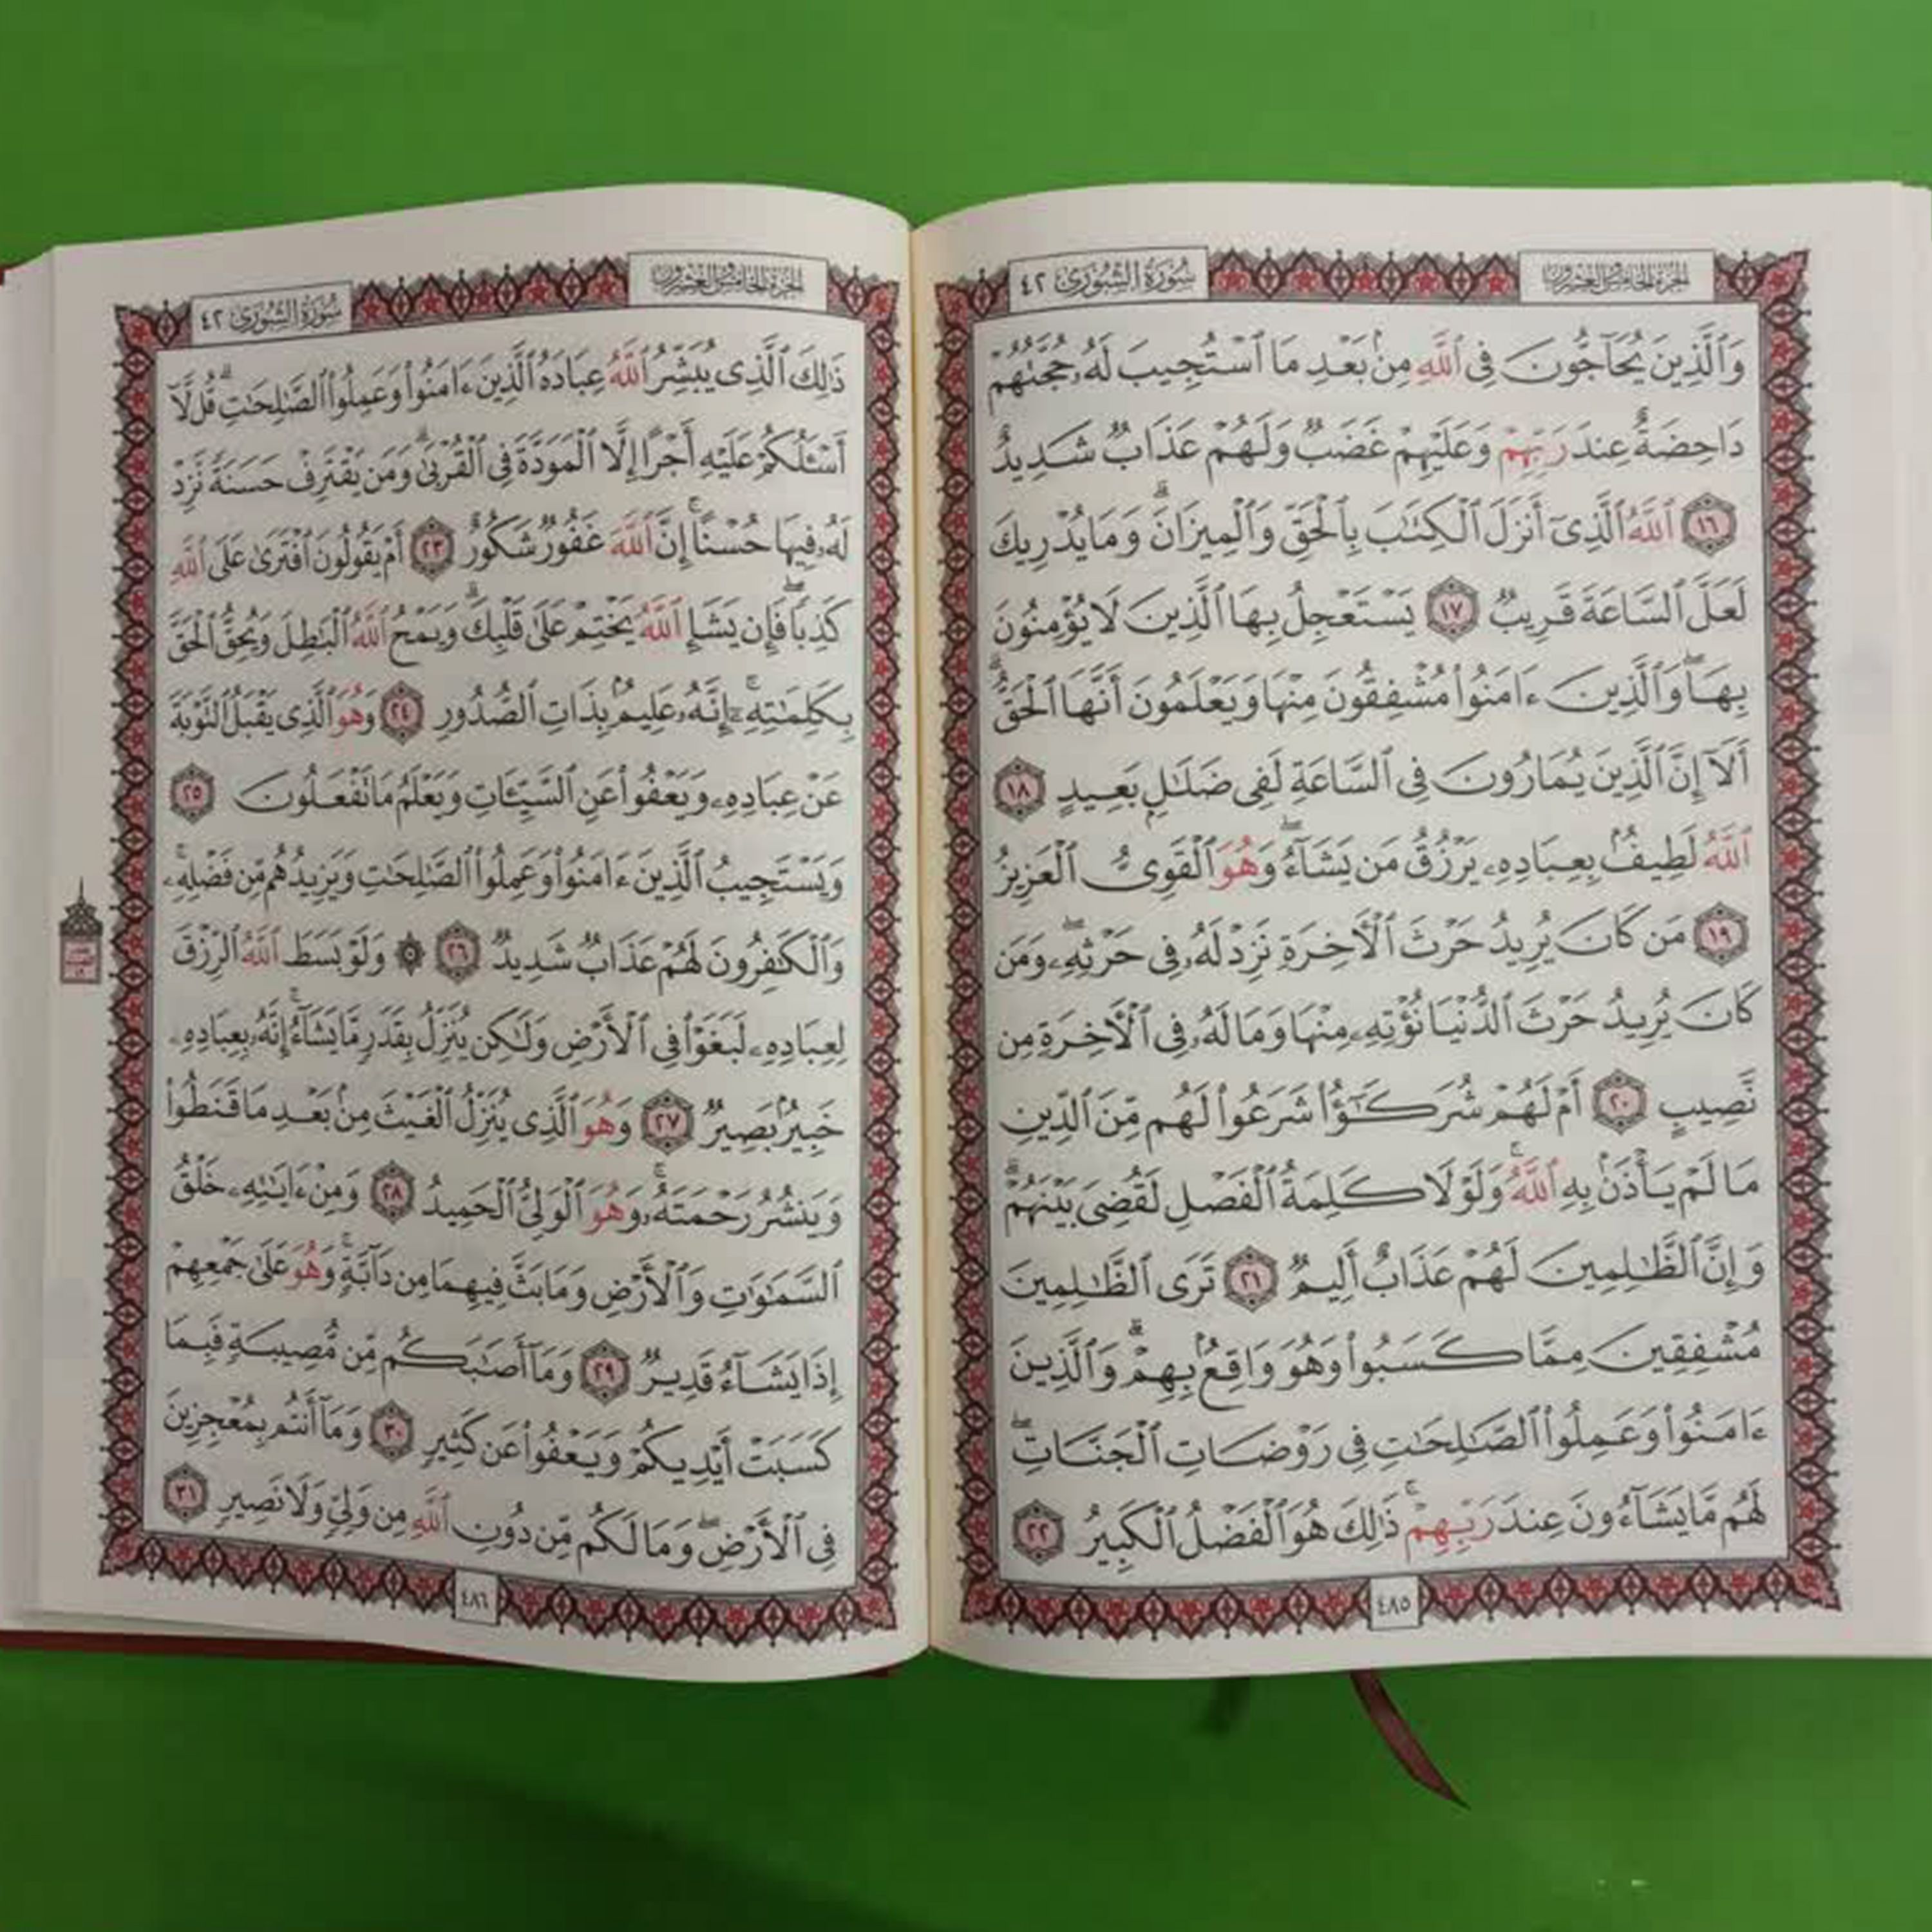 الجزء الخامس والعشرون
سورة الشورى ٤٢
وَٱلَّذِينَ يُحَآجُّونَ فِى ٱللَّهِ مِنۢ بَعْدِ مَا ٱسْتُجِيبَ لَهُۥ حُجَّتُهُمْ
دَاحِضَةٌ عِندَ رَبِّهِمْ وَعَلَيْهِمْ غَضَبٌ وَلَهُمْ عَذَابٌ شَدِيدٌ
١٦ ٱللَّهُ ٱلَّذِىٓ أَنزَلَ ٱلْكِتَٰبَ بِٱلْحَقِّ وَٱلْمِيزَانَ ۗ وَمَا يُدْرِيكَ
لَعَلَّ ٱلسَّاعَةَ قَرِيبٌ ١٧ يَسْتَعْجِلُ بِهَا ٱلَّذِينَ لَا يُؤْمِنُونَ
بِهَا ۖ وَٱلَّذِينَ ءَامَنُوا۟ مُشْفِقُونَ مِنْهَا وَيَعْلَمُونَ أَنَّهَا ٱلْحَقُّ ۗ
أَلَآ إِنَّ ٱلَّذِينَ يُمَارُونَ فِى ٱلسَّاعَةِ لَفِى ضَلَٰلٍۭ بَعِيدٍ ١٨
ٱللَّهُ لَطِيفٌۢ بِعِبَادِهِۦ يَرْزُقُ مَن يَشَآءُ ۖ وَهُوَ ٱلْقَوِىُّ ٱلْعَزِيزُ
١٩ مَن كَانَ يُرِيدُ حَرْثَ ٱلْءَاخِرَةِ نَزِدْ لَهُۥ فِى حَرْثِهِۦ ۖ وَمَن
كَانَ يُرِيدُ حَرْثَ ٱلدُّنْيَا نُؤْتِهِۦ مِنْهَا وَمَا لَهُۥ فِى ٱلْءَاخِرَةِ مِن
نَّصِيبٍ ٢٠ أَمْ لَهُمْ شُرَكَٰٓؤُا۟ شَرَعُوا۟ لَهُم مِّنَ ٱلدِّينِ
مَا لَمْ يَأْذَنۢ بِهِ ٱللَّهُ ۚ وَلَوْلَا كَلِمَةُ ٱلْفَصْلِ لَقُضِىَ بَيْنَهُمْ ۗ
وَإِنَّ ٱلظَّٰلِمِينَ لَهُمْ عَذَابٌ أَلِيمٌ ٢١ تَرَى ٱلظَّٰلِمِينَ
مُشْفِقِينَ مِمَّا كَسَبُوا۟ وَهُوَ وَاقِعٌۢ بِهِمْ ۗ وَٱلَّذِينَ
ءَامَنُوا۟ وَعَمِلُوا۟ ٱلصَّٰلِحَٰتِ فِى رَوْضَاتِ ٱلْجَنَّاتِ ۖ
لَهُم مَّا يَشَآءُونَ عِندَ رَبِّهِمْ ۚ ذَٰلِكَ هُوَ ٱلْفَضْلُ ٱلْكَبِيرُ ٢٢
٤٨٥
الجزء الخامس والعشرون
سورة الشورى ٤٢
ذَٰلِكَ ٱلَّذِى يُبَشِّرُ ٱللَّهُ عِبَادَهُ ٱلَّذِينَ ءَامَنُوا۟ وَعَمِلُوا۟ ٱلصَّٰلِحَٰتِ ۗ قُل لَّآ
أَسْـَٔلُكُمْ عَلَيْهِ أَجْرًا إِلَّا ٱلْمَوَدَّةَ فِى ٱلْقُرْبَىٰ ۗ وَمَن يَقْتَرِفْ حَسَنَةً نَّزِدْ
لَهُۥ فِيهَا حُسْنًا ۚ إِنَّ ٱللَّهَ غَفُورٌ شَكُورٌ ٢٣ أَمْ يَقُولُونَ ٱفْتَرَىٰ عَلَى ٱللَّهِ
كَذِبًا ۖ فَإِن يَشَإِ ٱللَّهُ يَخْتِمْ عَلَىٰ قَلْبِكَ ۗ وَيَمْحُ ٱللَّهُ ٱلْبَٰطِلَ وَيُحِقُّ ٱلْحَقَّ
بِكَلِمَٰتِهِۦٓ ۚ إِنَّهُۥ عَلِيمٌۢ بِذَاتِ ٱلصُّدُورِ ٢٤ وَهُوَ ٱلَّذِى يَقْبَلُ ٱلتَّوْبَةَ
عَنْ عِبَادِهِۦ وَيَعْفُوا۟ عَنِ ٱلسَّيِّـَٔاتِ وَيَعْلَمُ مَا تَفْعَلُونَ ٢٥
وَيَسْتَجِيبُ ٱلَّذِينَ ءَامَنُوا۟ وَعَمِلُوا۟ ٱلصَّٰلِحَٰتِ وَيَزِيدُهُم مِّن فَضْلِهِۦ ۚ
وَٱلْكَٰفِرُونَ لَهُمْ عَذَابٌ شَدِيدٌ ٢٦ ۞ وَلَوْ بَسَطَ ٱللَّهُ ٱلرِّزْقَ
لِعِبَادِهِۦ لَبَغَوْا۟ فِى ٱلْأَرْضِ وَلَٰكِن يُنَزِّلُ بِقَدَرٍ مَّا يَشَآءُ ۚ إِنَّهُۥ بِعِبَادِهِۦ
خَبِيرٌۢ بَصِيرٌ ٢٧ وَهُوَ ٱلَّذِى يُنَزِّلُ ٱلْغَيْثَ مِنۢ بَعْدِ مَا قَنَطُوا۟
وَيَنشُرُ رَحْمَتَهُۥ ۚ وَهُوَ ٱلْوَلِىُّ ٱلْحَمِيدُ ٢٨ وَمِنْ ءَايَٰتِهِۦ خَلْقُ
ٱلسَّمَٰوَٰتِ وَٱلْأَرْضِ وَمَا بَثَّ فِيهِمَا مِن دَآبَّةٍ ۚ وَهُوَ عَلَىٰ جَمْعِهِمْ
إِذَا يَشَآءُ قَدِيرٌ ٢٩ وَمَآ أَصَٰبَكُم مِّن مُّصِيبَةٍ فَبِمَا
كَسَبَتْ أَيْدِيكُمْ وَيَعْفُوا۟ عَن كَثِيرٍ ٣٠ وَمَآ أَنتُم بِمُعْجِزِينَ
فِى ٱلْأَرْضِ ۖ وَمَا لَكُم مِّن دُونِ ٱللَّهِ مِن وَلِىٍّ وَلَا نَصِيرٍ ٣١
٤٨٦